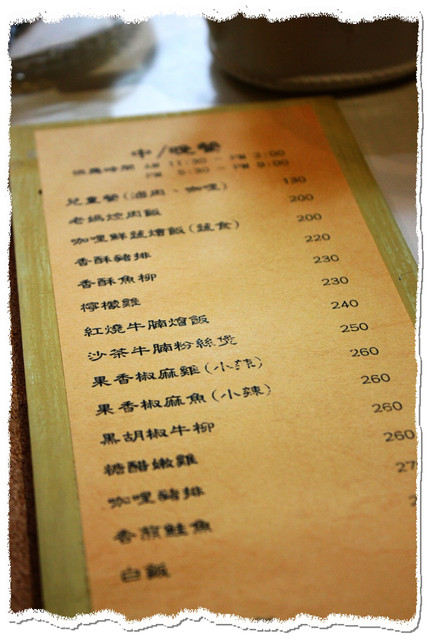 中/晚餐
供應時間 AM 11:30 - PM 2:00
PM 5:30 - PM 9:00
兒童餐(滷肉、咖哩) 130
老媽控肉飯 200
咖哩鮮蔬燴飯(蔬食) 200
香酥豬排 220
香酥魚柳 230
檸檬雞 230
紅燒牛腩燴飯 240
沙茶牛腩粉絲煲 250
果香椒麻雞(小辣) 260
果香椒麻魚(小辣) 260
黑胡椒牛柳 260
糖醋嫩雞 260
咖哩豬排 27
香煎鮭魚 2
白飯